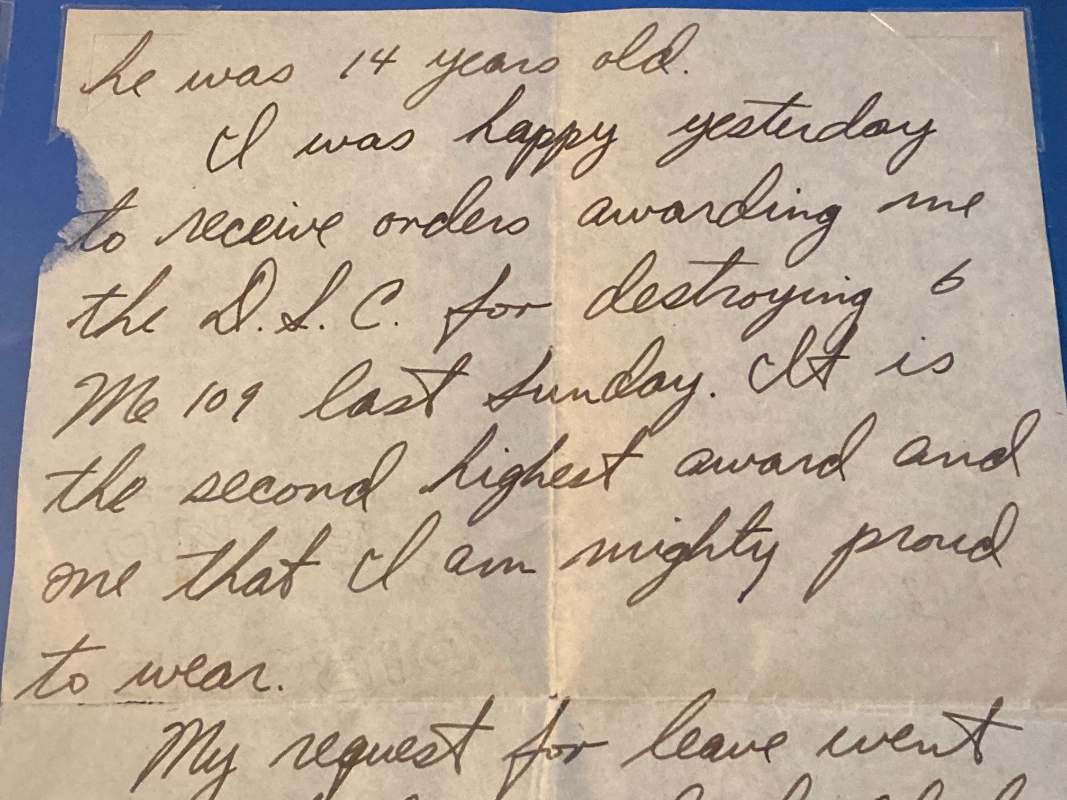 he was 14 years old.
I was happy yesterday
to receive orders awarding me
the D.S.C. for destroying 6
Me 109 last Sunday. It is
the second highest award and
one that I am mighty proud
to wear.
My request for leave went